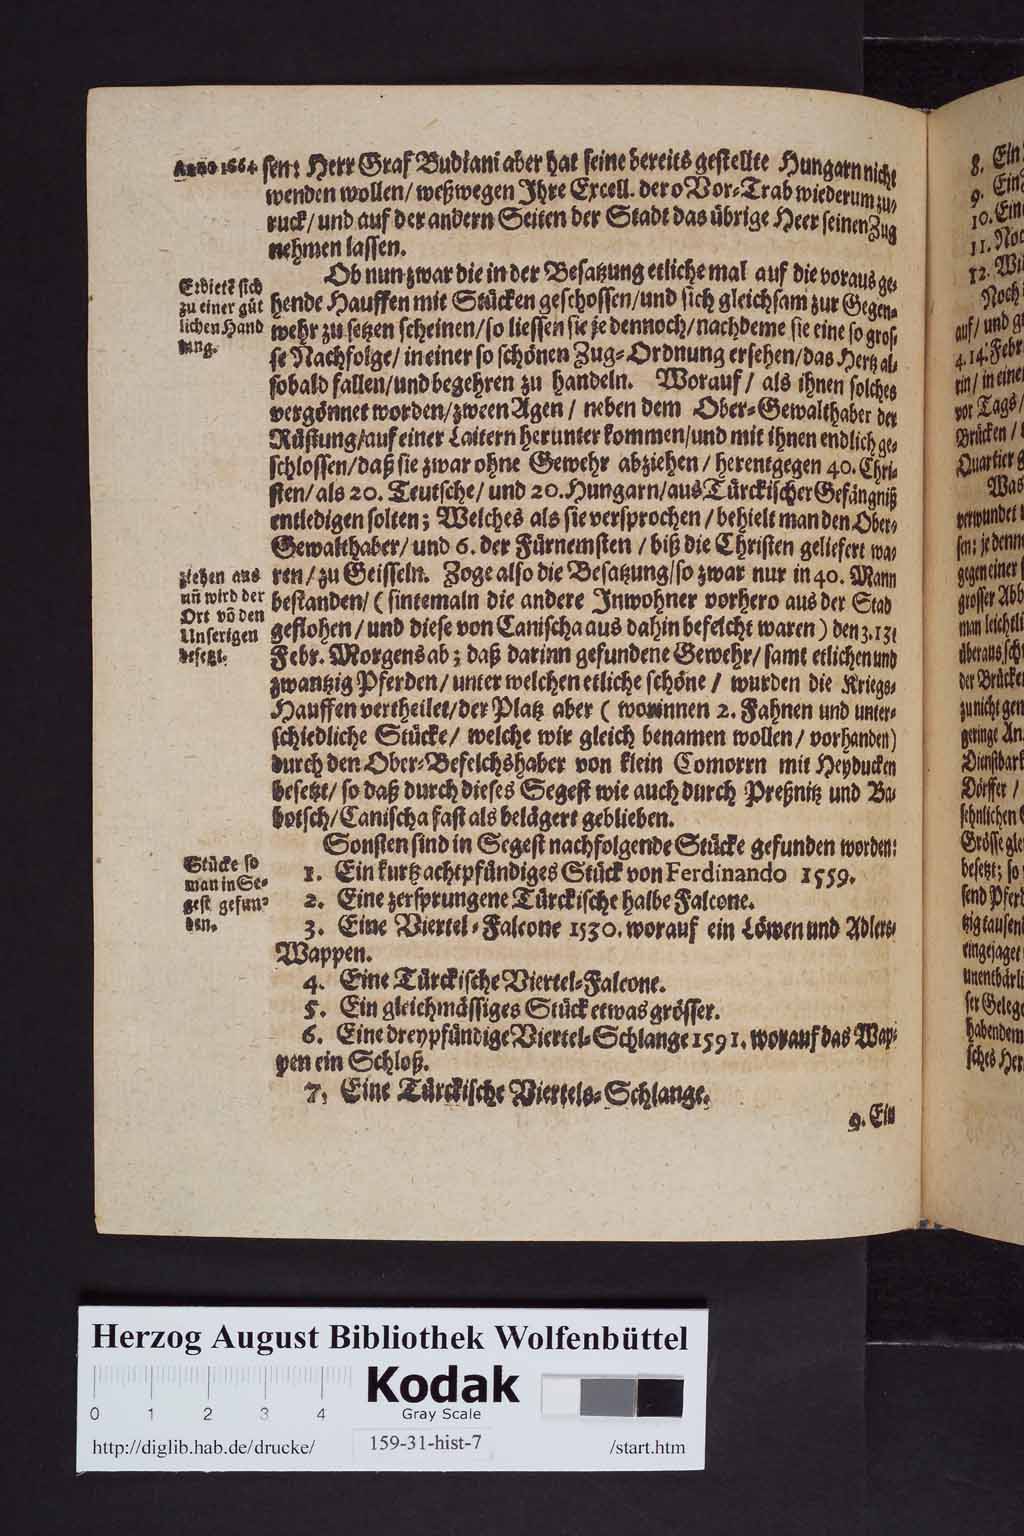 Anno 1664
sen: Herr Graf Budiani aber hat seine bereits gestellte Hungarn nicht
wenden wollen/ weßwegen Ihre Excell. dero Vor-Trab wiederum zu-
ruck/ und auf der andern Seiten der Stadt das übrige Heer seinen Zug
nehmen lassen.
Erbiett sich
zu einer güt
lichen Hand
lung.
Ob nun zwar die in der Besatzung etliche mal auf die voraus ge-
hende Hauffen mit Stücken geschossen/ und sich gleichsam zur Gegen-
wehr zu setzen scheinen/ so liessen sie je dennoch/ nachdeme sie eine so gros-
se Nachfolge/ in einer so schönen Zug-Ordnung ersehen/ das Hertz al-
sobald fallen/ und begehren zu handeln. Worauf/ als ihnen solches
vergönnet worden/ zween Agen/ neben dem Ober-Gewalthaber der
Rüstung/ auf einer Laitern herunter kommen/ und mit ihnen endlich ge-
schlossen/ daß sie zwar ohne Gewehr abziehen/ herentgegen 40. Chri-
sten/ als 20. Teutsche/ und 20. Hungarn/ aus Türckischer Gefängniß
entledigen solten; Welches als sie versprochen/ behielt man den Ober-
Gewalthaber/ und 6. der Fürnemsten/ biß die Christen geliefert wa-
ren/ zu Geisseln. Zoge also die Besatzung/ so zwar nur in 40. Mann
bestanden/ (sintemaln die andere Inwohner vorhero aus der Stad
geflohen/ und diese von Canischa aus dahin befelcht waren) den 3. 13t
Febr. Morgens ab; daß darinn gefundene Gewehr/ samt etlichen und
zwantzig Pferden/ unter welchen etliche schöne/ wurden die Kriegs-
Hauffen vertheilet/ der Platz aber (worinnen 2. Fahnen und unter-
schiedliche Stücke/ welche wir gleich benamen wollen/ vorhanden)
durch den Ober-Befelchshaber von klein Comorrn mit Heyducken
besetzt/ so daß durch dieses Segest wie auch durch Preßnitz und Ba-
botsch/ Canischa fast als belägert geblieben.
ziehen aus
uñ wird der
Ort võ den
Unserigen
besetzt.
Sonsten sind in Segest nachfolgende Stücke gefunden worden:
Stücke so
man in Se-
gest gefun-
den.
1. Ein kurtz achtpfündiges Stück von Ferdinando 1559.
2. Eine zersprungene Türckische halbe Falcone.
3. Eine Viertel-Falcone 1530. worauf ein Löwen und Adlers-
Wappen.
4. Eine Türckische Viertel-Falcone.
5. Ein gleichmässiges Stück etwas grösser.
6. Eine dreypfündige Viertel-Schlange 1591. worauf das Wap-
pen ein Schloß.
7. Eine Türckische Viertels-Schlange.
9. Ein
8. Ein
9. Ein
10. Ein
11. Noc
12. Wi
Noch
auf/ und
4. 14. Febr
rin/ in eine
vor Tags/
Brücken/
Quartier
Was
verwundet
sen: je denn
gegen einer
grosser Abb
man leichtli
überaus sch
der Brücke
zu nicht gen
geringe An
Dienstbark
Dörffer/
sehnlichen
Grösse gle
besetzt; so
send Pferd
tzig tausen
eingejaget
unentbärli
ser Gelege
habendem
sches Her
Herzog August Bibliothek Wolfenbüttel
Kodak
Gray Scale
0 1 2 3 4
http://diglib.hab.de/drucke/ 159-31-hist-7 /start.htm